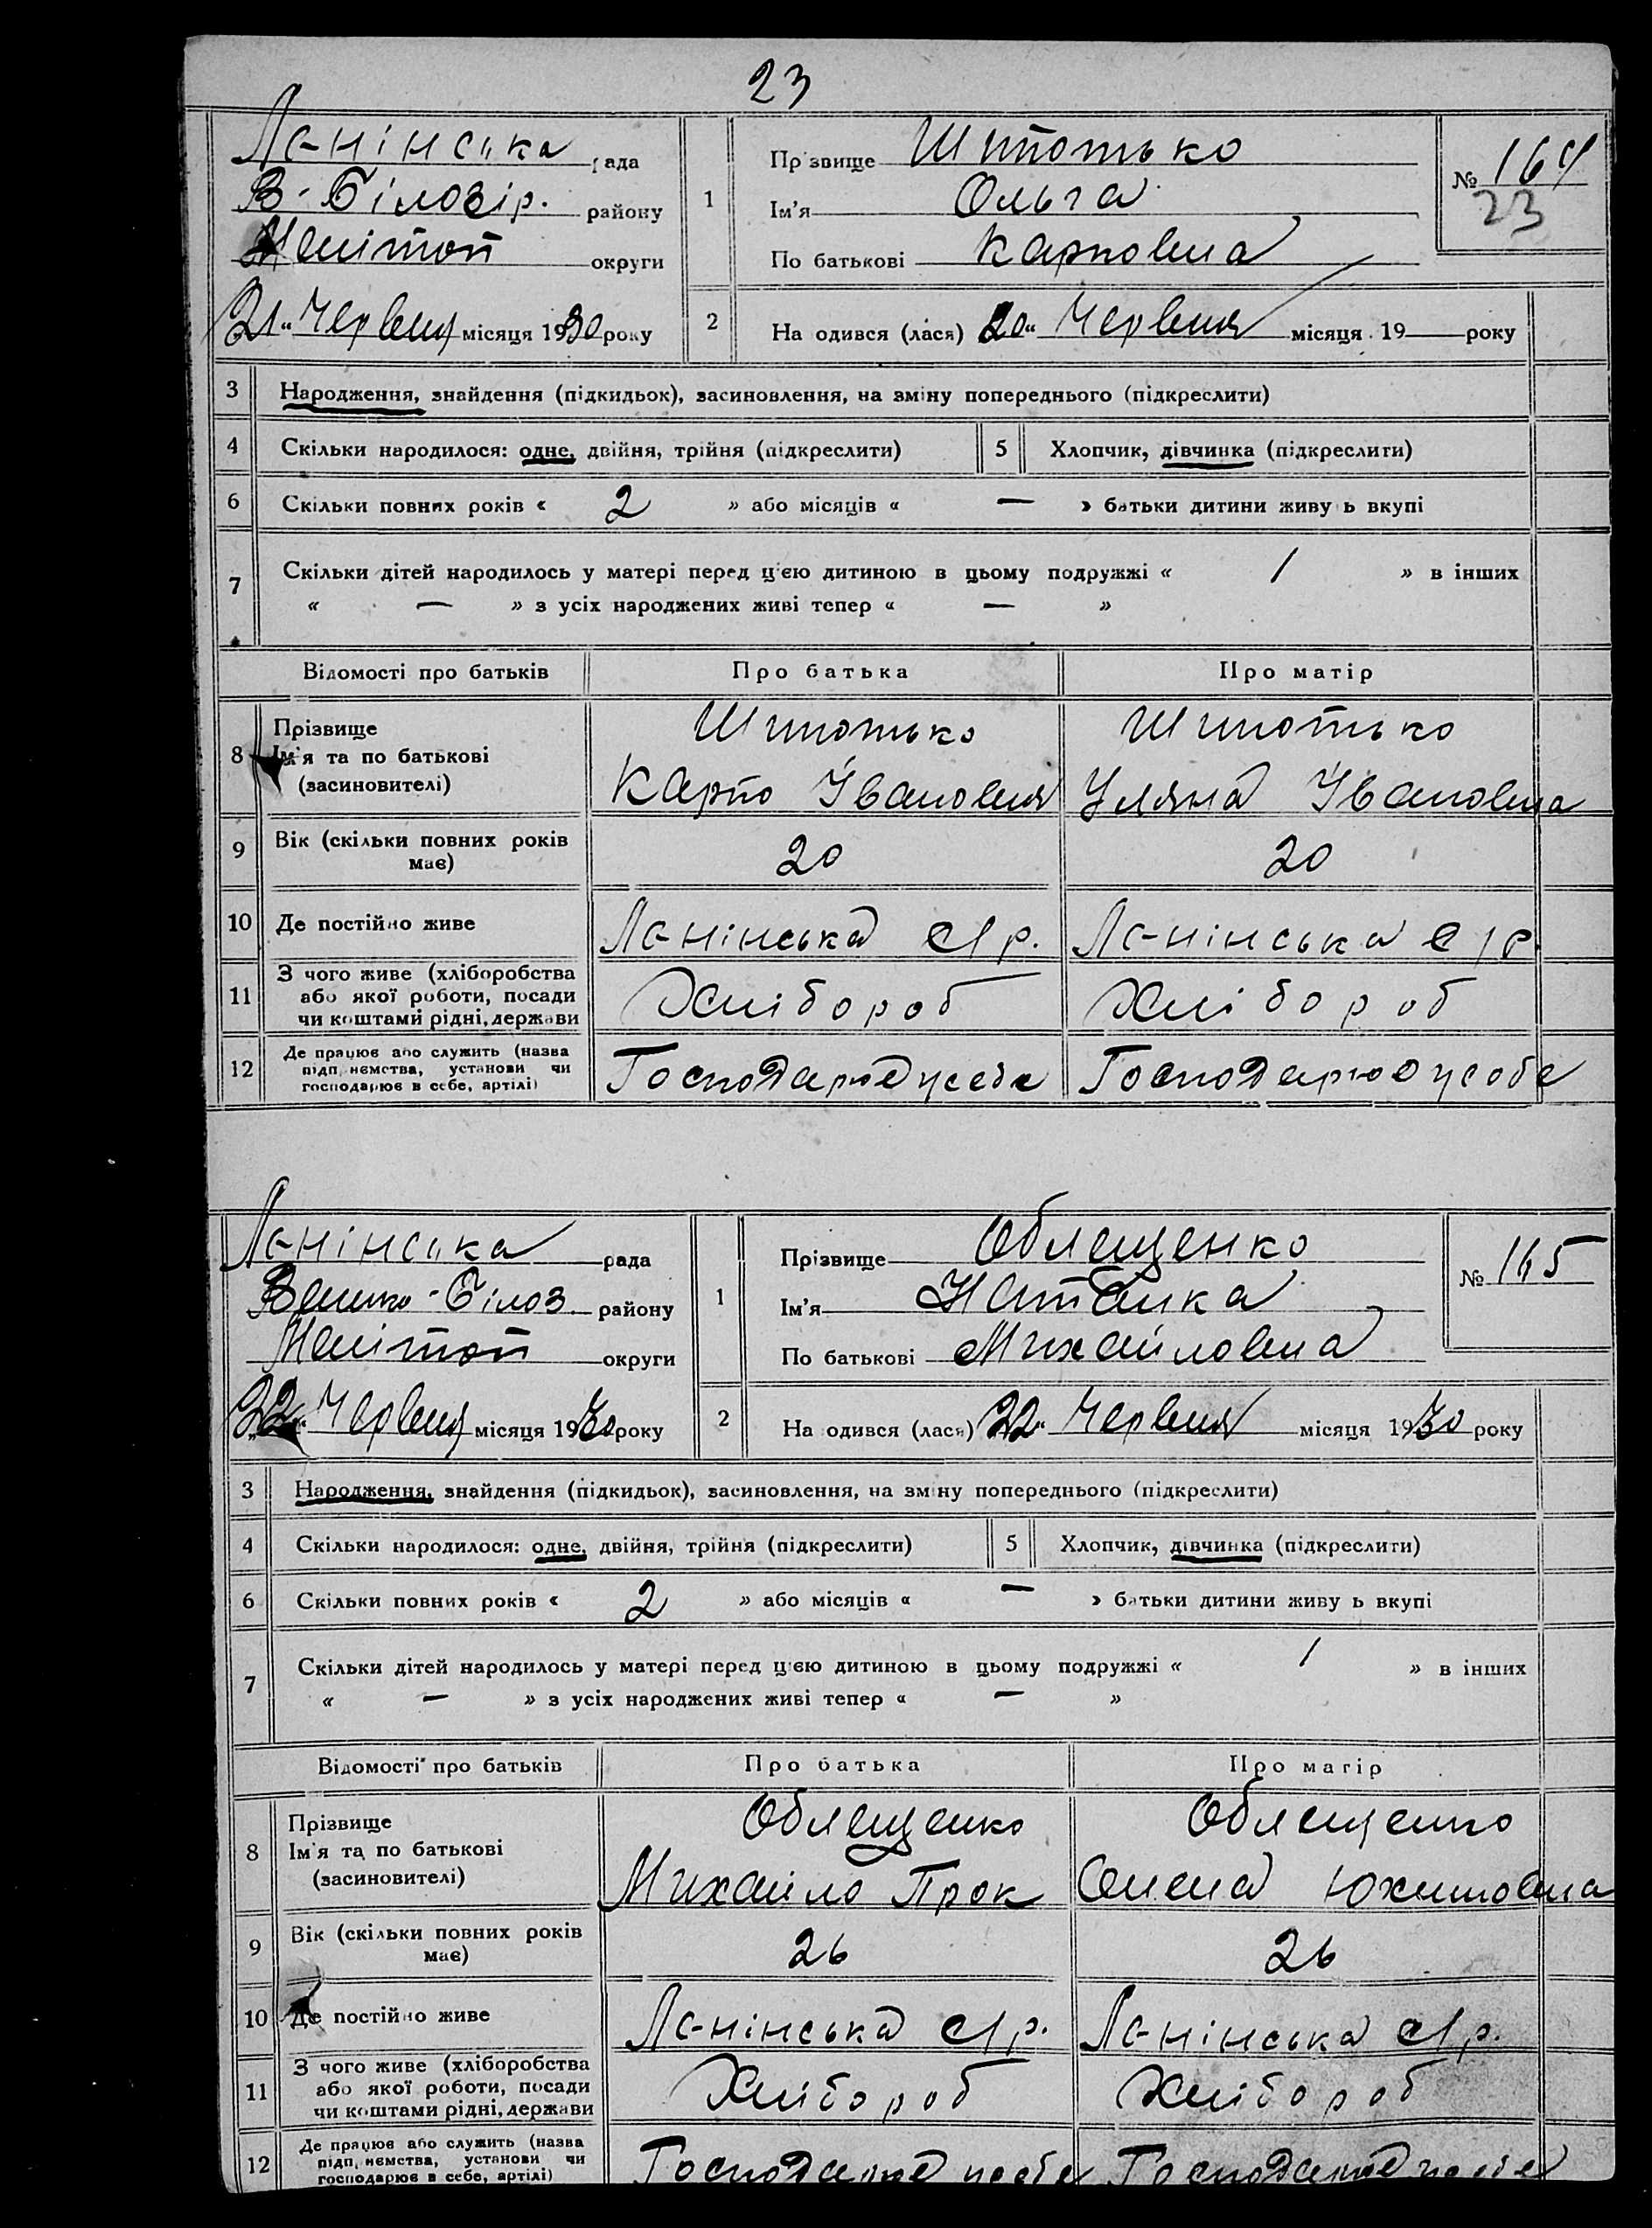 23
Ленінська рада
В-Білозір. району
Меліт оп округи
"21" Червня місяця 1930 року
1
Прізвище Шпотько
Ім'я Ольга
По батькові Карповна
№ 164
23
2
На одився (лася) "20" Червня місяця 19 року
3 Народження, знайдення (підкидьок), засиновлення, на зміну попереднього (підкреслити)
4 Скільки народилося: одне, двійня, трійня (підкреслити) 5 Хлопчик, дівчинка (підкреслити)
6 Скільки повних років « 2 » або місяців « — » батьки дитини живу ь вкупі
7 Скільки дітей народилось у матері перед цією дитиною в цьому подружжі « 1 » в інших
« — » з усіх народжених живі тепер « — »
Відомості про батьків Про батька Про матір
8 Прізвище
Ім'я та по батькові
(засиновителі)
Шпотько
Карпо Івановия
Шпотько
Уляна Івановна
9 Вік (скільки повних років
має)
20 20
10 Де постійно живе Ленінська с/р. Ленінська с/р.
11 З чого живе (хліборобства
або якої роботи, посади
чи коштами рідні, держави
Хлібороб Хлібороб
12 Де працює або служить (назва
підп, немства, установи чи
господарює в себе, артілі)
Господарює у себе Господарює у себе
Ленінська рада
Велико-Білоз. району
Мелітоп округи
"22" Червня місяця 1930 року
1
Прізвище Облещенко
Ім'я Наталка
По батькові Михайловна
№ 165
2
На одився (лася) "22" Червня місяця 1930 року
3 Народження, знайдення (підкидьок), засиновлення, на зміну попереднього (підкреслити)
4 Скільки народилося: одне, двійня, трійня (підкреслити) 5 Хлопчик, дівчинка (підкреслити)
6 Скільки повних років « 2 » або місяців « — » батьки дитини живу ь вкупі
7 Скільки дітей народилось у матері перед цією дитиною в цьому подружжі « 1 » в інших
« — » з усіх народжених живі тепер « — »
Відомості про батьків Про батька Про матір
8 Прізвище
Ім'я та по батькові
(засиновителі)
Облещенко
Михайло Прок
Облещенко
Олена Юхимовна
9 Вік (скільки повних років
має)
26 26
10 Де постійно живе Ленінська с/р. Ленінська с/р.
11 З чого живе (хліборобства
або якої роботи, посади
чи коштами рідні, держави
Хлібороб Хлібороб
12 Де працює або служить (назва
підп, немства, установи чи
господарює в себе, артілі)
Господарює у себе Господарює у себе